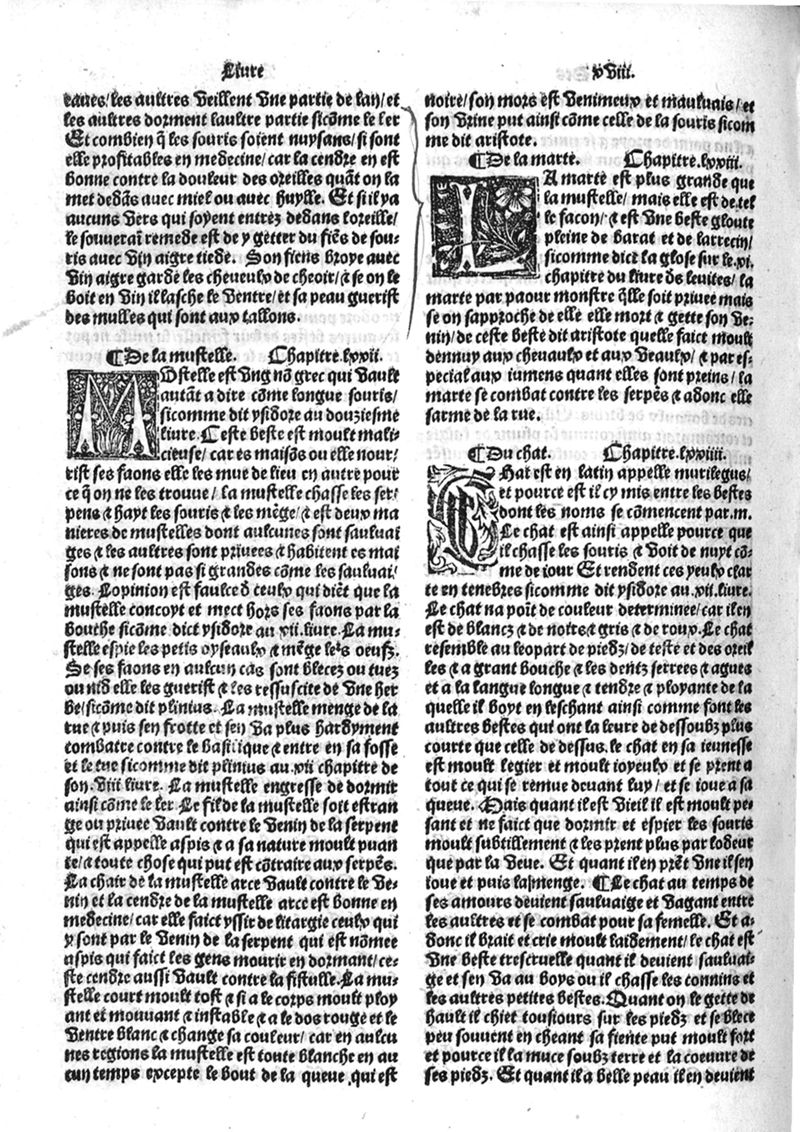 Liure
xViii.
eaues/les aultres Veillent Vne partie de lan/et
les aultres dorment laultre partie sicõme le ler
Et combien q̃ les souris soient nuysans/si sont
elle profitables en medecine/car la cendre en est
bonne contre la douleur des oreilles quãt on la
met dedãs auec miel ou auec huylle. Et si il ya
aucuns Vers qui soyent entrez dedans loreille/
le souuerai̅ remede est de y getter du fie̅s de sou-
ris auec Vin aigre tiede. Son fiens broye auec
Vin aigre garde les cheueulx de cheoir/& se on le
boit en Vin il lasche le Ventre/et sa peau guerist
des mulles qui sont aux tallons.
¶De la mustelle. Chapitre.lxxii.
MVstelle est Vng nõ grec qui Vault
autãt a dire cõme longue souris/
sicomme dit ysidore au douziesme
liure. Ceste beste est moult mali-
cieuse/car es maisõs ou elle nour/
rist ses faons elle les mue de lieu en autre pour
ce q̃ on ne les trouue/la mustelle chasse les ser/
pens & hayt les souris & les mẽge/& est deux ma
nieres de mustelles dont aulcunes sont sauluai
ges & les aultres sont priuees & habitent es mai
sons & ne sont pas si grandes cõme les sauluai/
ges. Lopinion est faulce d̃ ceulx qui diẽt que la
mustelle concoyt et mect hors ses faons par la
bouche sicõme dict ysidore au xii.liure. La mu-
stelle espie les petis oyseaulx & mẽge leᵉs oeufz.
Se ses faons en aulcun cas sont blecez ou tuez
ou nid elle les guerist & les ressuscite de Vne her
be/sicõme dit plinius. La mustelle menge de la
rue & puis sen frotte et sen Va plus hardyment
combatre contre le basilique & entre en sa fosse
et le tue sicomme dit plinius au.vii chapitre de
son.Viii liure. La mustelle engresse de dormir
ainsi cõme le ler Le fil de la mustelle soit estran
ge ou priuee Vault contre le Venin de la serpent
qui est appelle aspis & a sa nature moult puan
te/& toute chose qui put est cõtraire aux serpẽs.
La chair de la mustelle arce Vault contre le Ve-
nin et la cendre de la mustelle arce est bonne en
medecine/car elle faict yssir de litargie ceulx qui
y sont par le Venin de la serpent qui est nõmee
aspis qui faict les gens mourir en dormant/ce/
ste cendre aussi Vault contre la fistulle. La mu-
stelle court moult tost & si a le corps moult ploy
ant et mouuant & instable & a le dos rouge et le
Ventre blanc & change sa couleur/car en aulcu
nes regions la mustelle est toute blanche en au
cun temps excepte le bout de la queue qui est
noire/son mors est Venimeux et mauluais/et
son Vrine put ainsi cõme celle de la souris sicom
me dit aristote.
¶De la marte. Chapitre.lxxiii.
LA marte est plus grande que
la mustelle/mais elle est de tel
le facon/& est Vne beste gloute
pleine de barat et de larrecin/
sicomme dict la glose sur le.xi.
chapitre du liure d̃s leuites/la
marte par paour monstre q̃lle soit priuee mais
se on sapproche de elle elle mort & gette son Ve-
nin/de ceste beste dit aristote quelle faict moult
dennuy aux cheuaulx et aux Veaulx/& par es-
pecial aux iumens quant elles sont preins/la
marte se combat contre les serpẽs & adonc elle
sarme de la rue.
¶Du chat. Chapitre.lxxiiii.
CHat est en latin appelle murilegus/
et pource est il cy mis entre les bestes
dont les noms se cõmencent par.m.
Le chat est ainsi appelle pource que
il chasse les souris & Voit de nuyt cõ-
me de iour Et rendent ces yeulx clar
te en tenebres sicomme dit ysidore au.xii.liure.
Le chat na poĩt de couleur determinee/car il en
est de blancz & de noirs & gris & de roux. Le chat
resemble au leopart de piedz/de teste et des oreil
les & a grant bouche & les dentz serrees & agues
et a la langue longue & tendre & ployante de la
quelle il boyt en leschant ainsi comme font les
aultres bestes qui ont la leure de dessoubz plus
courte que celle de dessus.le chat en sa ieunesse
est moult legier et moult ioyeulx et se prent a
tout ce qui se remue deuant luy/et se ioue a sa
queue. Mais quant il est Vieil il est moult pe-
sant et ne faict que dormir et espier les souris
moult subtillement & les prent plus par lodeur
que par la Veue. Et quant il en prẽt Vne il sen
ioue et puis la menge. ¶Le chat au temps de
ses amours deuient sauluaige et Vagant entre
les aultres et se combat pour sa femelle. Et a-
donc il brait et crie moult laidement/le chat est
Vne beste trescruelle quant il deuient sauluai-
ge et sen Va au boys ou il chasse les connins et
les aultres petites bestes. Quant on le gette de
hault il chiet tousiours sur les piedz et se blece
peu souuent en cheant sa fiente put moult fort
et pource il la muce soubz terre et la coeuure de
ses piedz. Et quant il a belle peau il en deuient